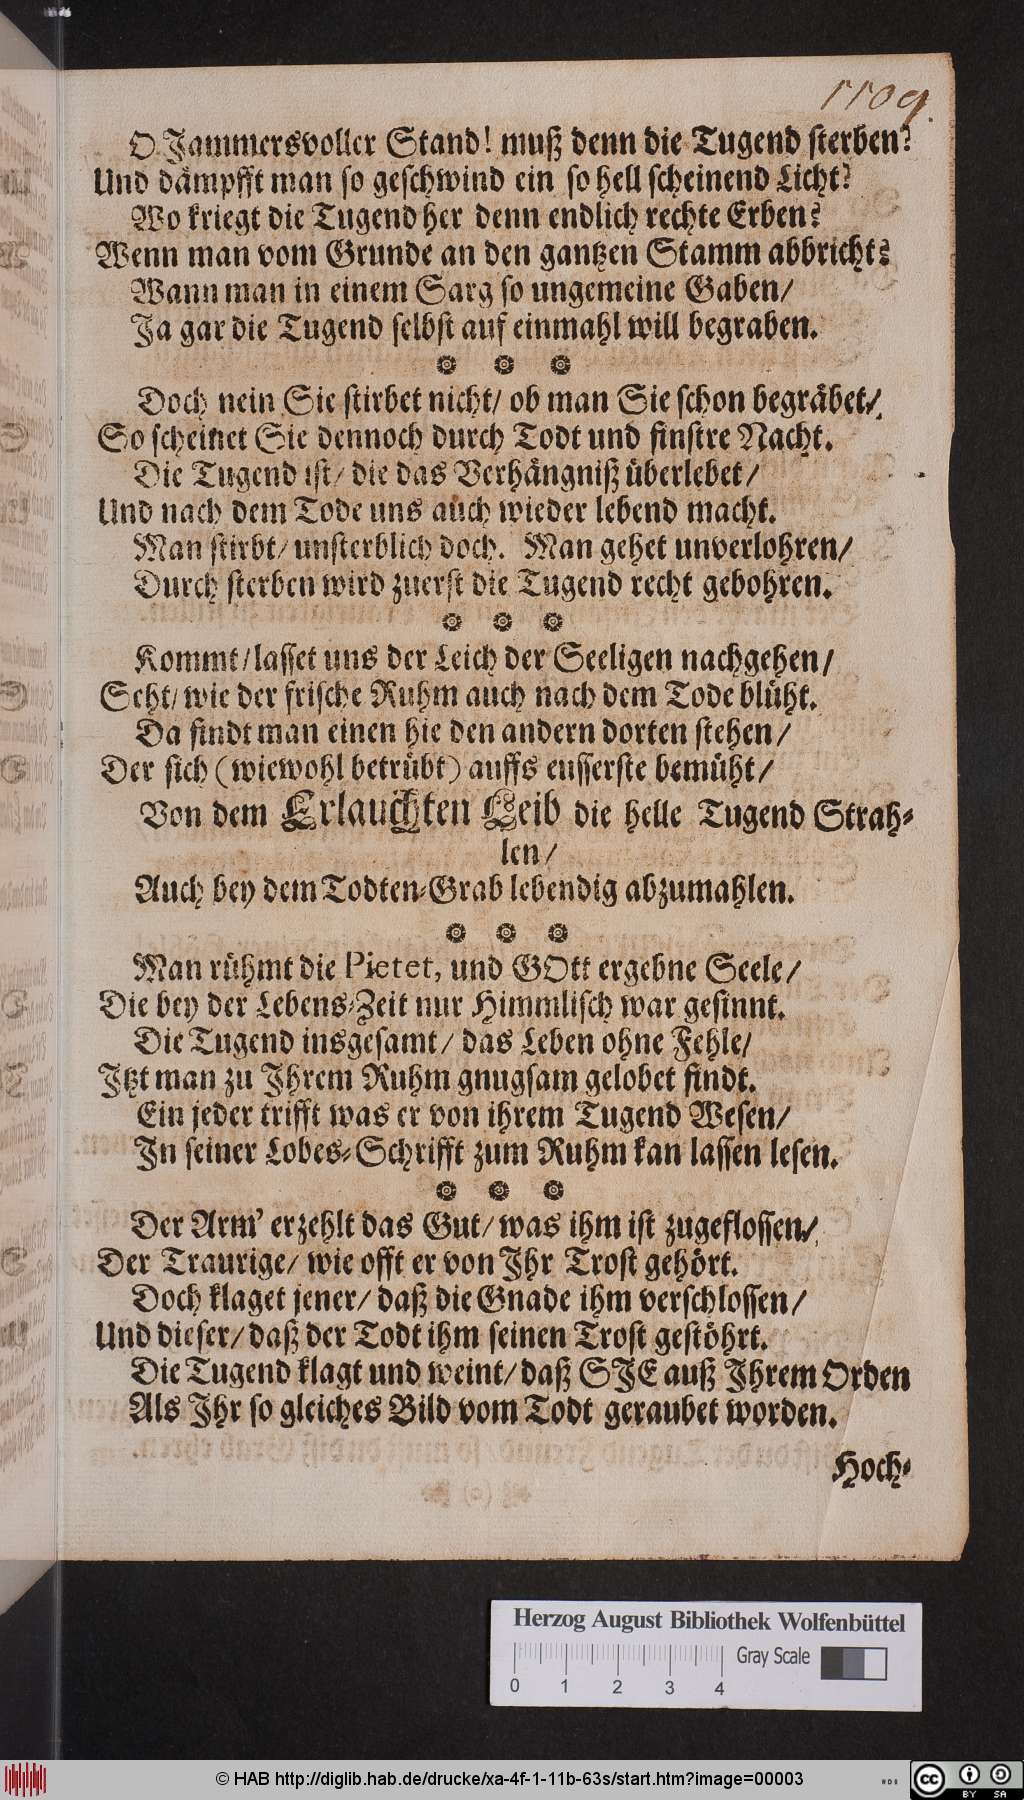 1109.
O Jammersvoller Stand! muß denn die Tugend sterben?
Und dämpfft man so geschwind ein so hell scheinend Licht?
Wo kriegt die Tugend her denn endlich rechte Erben?
Wenn man vom Grunde an den gantzen Stamm abbricht?
Wann man in einem Sarg so ungemeine Gaben/
Ja gar die Tugend selbst auf einmahl will begraben.
Doch nein Sie stirbet nicht/ ob man Sie schon begräbet/
So scheinet Sie dennoch durch Todt und finstre Nacht.
Die Tugend ist/ die das Verhängniß überlebet/
Und nach dem Tode uns auch wieder lebend macht.
Man stirbt/ unsterblich doch. Man gehet unverlohren/
Durch sterben wird zuerst die Tugend recht gebohren.
Kommt/ lasset uns der Leich der Seeligen nachgehen/
Seht/ wie der frische Ruhm auch nach dem Tode blüht.
Da findt man einen hie den andern dorten stehen/
Der sich (wiewohl betrübt) auffs eusserste bemüht/
Von dem Erlauchten Leib die helle Tugend Strah-
len/
Auch bey dem Todten-Grab lebendig abzumahlen.
Man rühmt die Pietet, und GOtt ergebne Seele/
Die bey der Lebens-Zeit nur Himmlisch war gesinnt.
Die Tugend insgesamt/ das Leben ohne Fehle/
Jtzt man zu Jhrem Ruhm gnugsam gelobet findt.
Ein jeder trifft was er von ihrem Tugend Wesen/
Jn seiner Lobes-Schrifft zum Ruhm kan lassen lesen.
Der Arm' erzehlt das Gut/ was ihm ist zugeflossen/
Der Traurige/ wie offt er von Jhr Trost gehört.
Doch klaget jener/ daß die Gnade ihm verschlossen/
Und dieser/ daß der Todt ihm seinen Trost gestöhrt.
Die Tugend klagt und weint/ daß SJE auß Jhrem Orden
Als Jhr so gleiches Bild vom Todt geraubet worden.
Hoch-
Herzog August Bibliothek Wolfenbüttel
Gray Scale
0 1 2 3 4
© HAB http://diglib.hab.de/drucke/xa-4f-1-11b-63s/start.htm?image=00003
cc BY SA